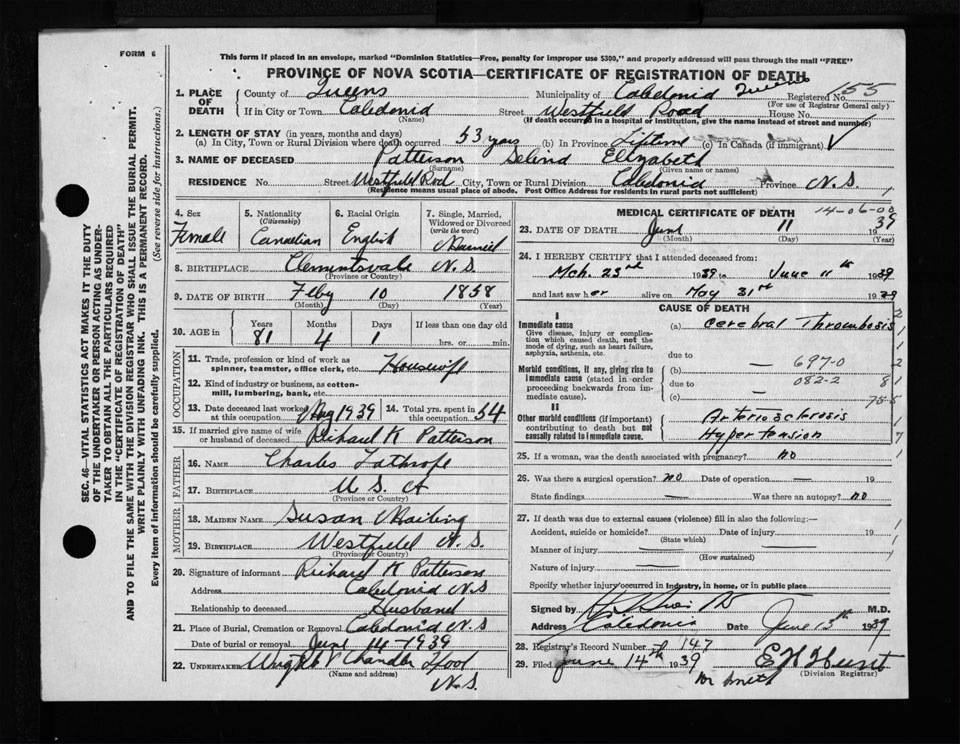 FORM 6
This form if placed in an envelope, marked "Dominion Statistics—Free, penalty for improper use $300," and properly addressed will pass through the mail "FREE"
PROVINCE OF NOVA SCOTIA—CERTIFICATE OF REGISTRATION OF DEATH
1. PLACE OF DEATH
County of Queens Municipality of Caledonia Queens Registered No. 155
(For use of Registrar General only)
If in City or Town Caledonia Street Westfield Road House No.
(Name) (If death occurred in a hospital or institution, give the name instead of street and number)
2. LENGTH OF STAY (in years, months and days)
(a) In City, Town or Rural Division where death occurred 53 years (b) In Province Lifetime (c) In Canada (if immigrant) ✓
3. NAME OF DECEASED Patterson Selina Elizabeth
(Surname) (Given name or names)
RESIDENCE No. Street Westfield Rod City, Town or Rural Division Caledonia Province N.S.
(Residence means usual place of abode. Post Office Address for residents in rural parts not sufficient)
4. Sex Female
5. Nationality (Citizenship) Canadian
6. Racial Origin English
7. Single, Married, Widowed or Divorced (write the word) Married
8. BIRTHPLACE Clementsvale N.S.
(Province or Country)
9. DATE OF BIRTH Feby 10 1858
(Month) (Day) (Year)
10. AGE in Years Months Days If less than one day old
81 4 1 hrs. or min.
OCCUPATION
11. Trade, profession or kind of work as spinner, teamster, office clerk, etc. Housewife
12. Kind of industry or business, as cotton-mill, lumbering, bank, etc.
13. Date deceased last worked at this occupation 1939 14. Total yrs. spent in 54
15. If married give name of wife or husband of deceased Richard K Patterson
FATHER
16. Name Charles Lathrope
17. Birthplace U S. A
(Province or Country)
MOTHER
18. Maiden Name Susan
19. Birthplace Westfield N.S
(Province or Country)
20. Signature of informant Richard K Patterson
Address Caledonia N.S
Relationship to deceased Husband
21. Place of Burial, Cremation or Removal Caledonia N.S
Date of burial or removal June 14-1939
22. UNDERTAKER Wright Chandler Lpool
(Name and address)
N.S.
MEDICAL CERTIFICATE OF DEATH 14-06-00
23. DATE OF DEATH June 11 1939
(Month) (Day) (Year)
24. I HEREBY CERTIFY that I attended deceased from:
Mch. 23rd 1939 to June 11th 1939
and last saw her alive on May 31st 1939
CAUSE OF DEATH
I
Immediate cause
Give disease, injury or complication which caused death, not the mode of dying, such as heart failure, asphyxia, asthenia, etc.
(a) Cerebral Thrombosis
due to
Morbid conditions, if any, giving rise to immediate cause (stated in order proceeding backwards from immediate cause).
(b) — 697-0
due to 082-2
(c) —
II
Other morbid conditions (if important) contributing to death but not causally related to immediate cause.
Arteriosclerosis
Hypertension
25. If a woman, was the death associated with pregnancy? no
26. Was there a surgical operation? no Date of operation — 19
State findings — Was there an autopsy? no
27. If death was due to external causes (violence) fill in also the following:—
Accident, suicide or homicide? Date of injury 19
(State which)
Manner of injury
(How sustained)
Nature of injury
Specify whether injury occurred in industry, in home, or in public place
Signed by M.D.
Address Caledonia Date June 13th 1939
28. Registrar's Record Number 147
29. Filed June 14th 1939 E H Hunt
(Division Registrar)
SEC. 46—VITAL STATISTICS ACT MAKES IT THE DUTY
OF THE UNDERTAKER OR PERSON ACTING AS UNDER-
TAKER TO OBTAIN ALL THE PARTICULARS REQUIRED
IN THE "CERTIFICATE OF REGISTRATION OF DEATH"
AND TO FILE THE SAME WITH THE DIVISION REGISTRAR WHO SHALL ISSUE THE BURIAL PERMIT.
WRITE PLAINLY WITH UNFADING INK. THIS IS A PERMANENT RECORD.
Every item of information should be carefully supplied. (See reverse side for instructions.)